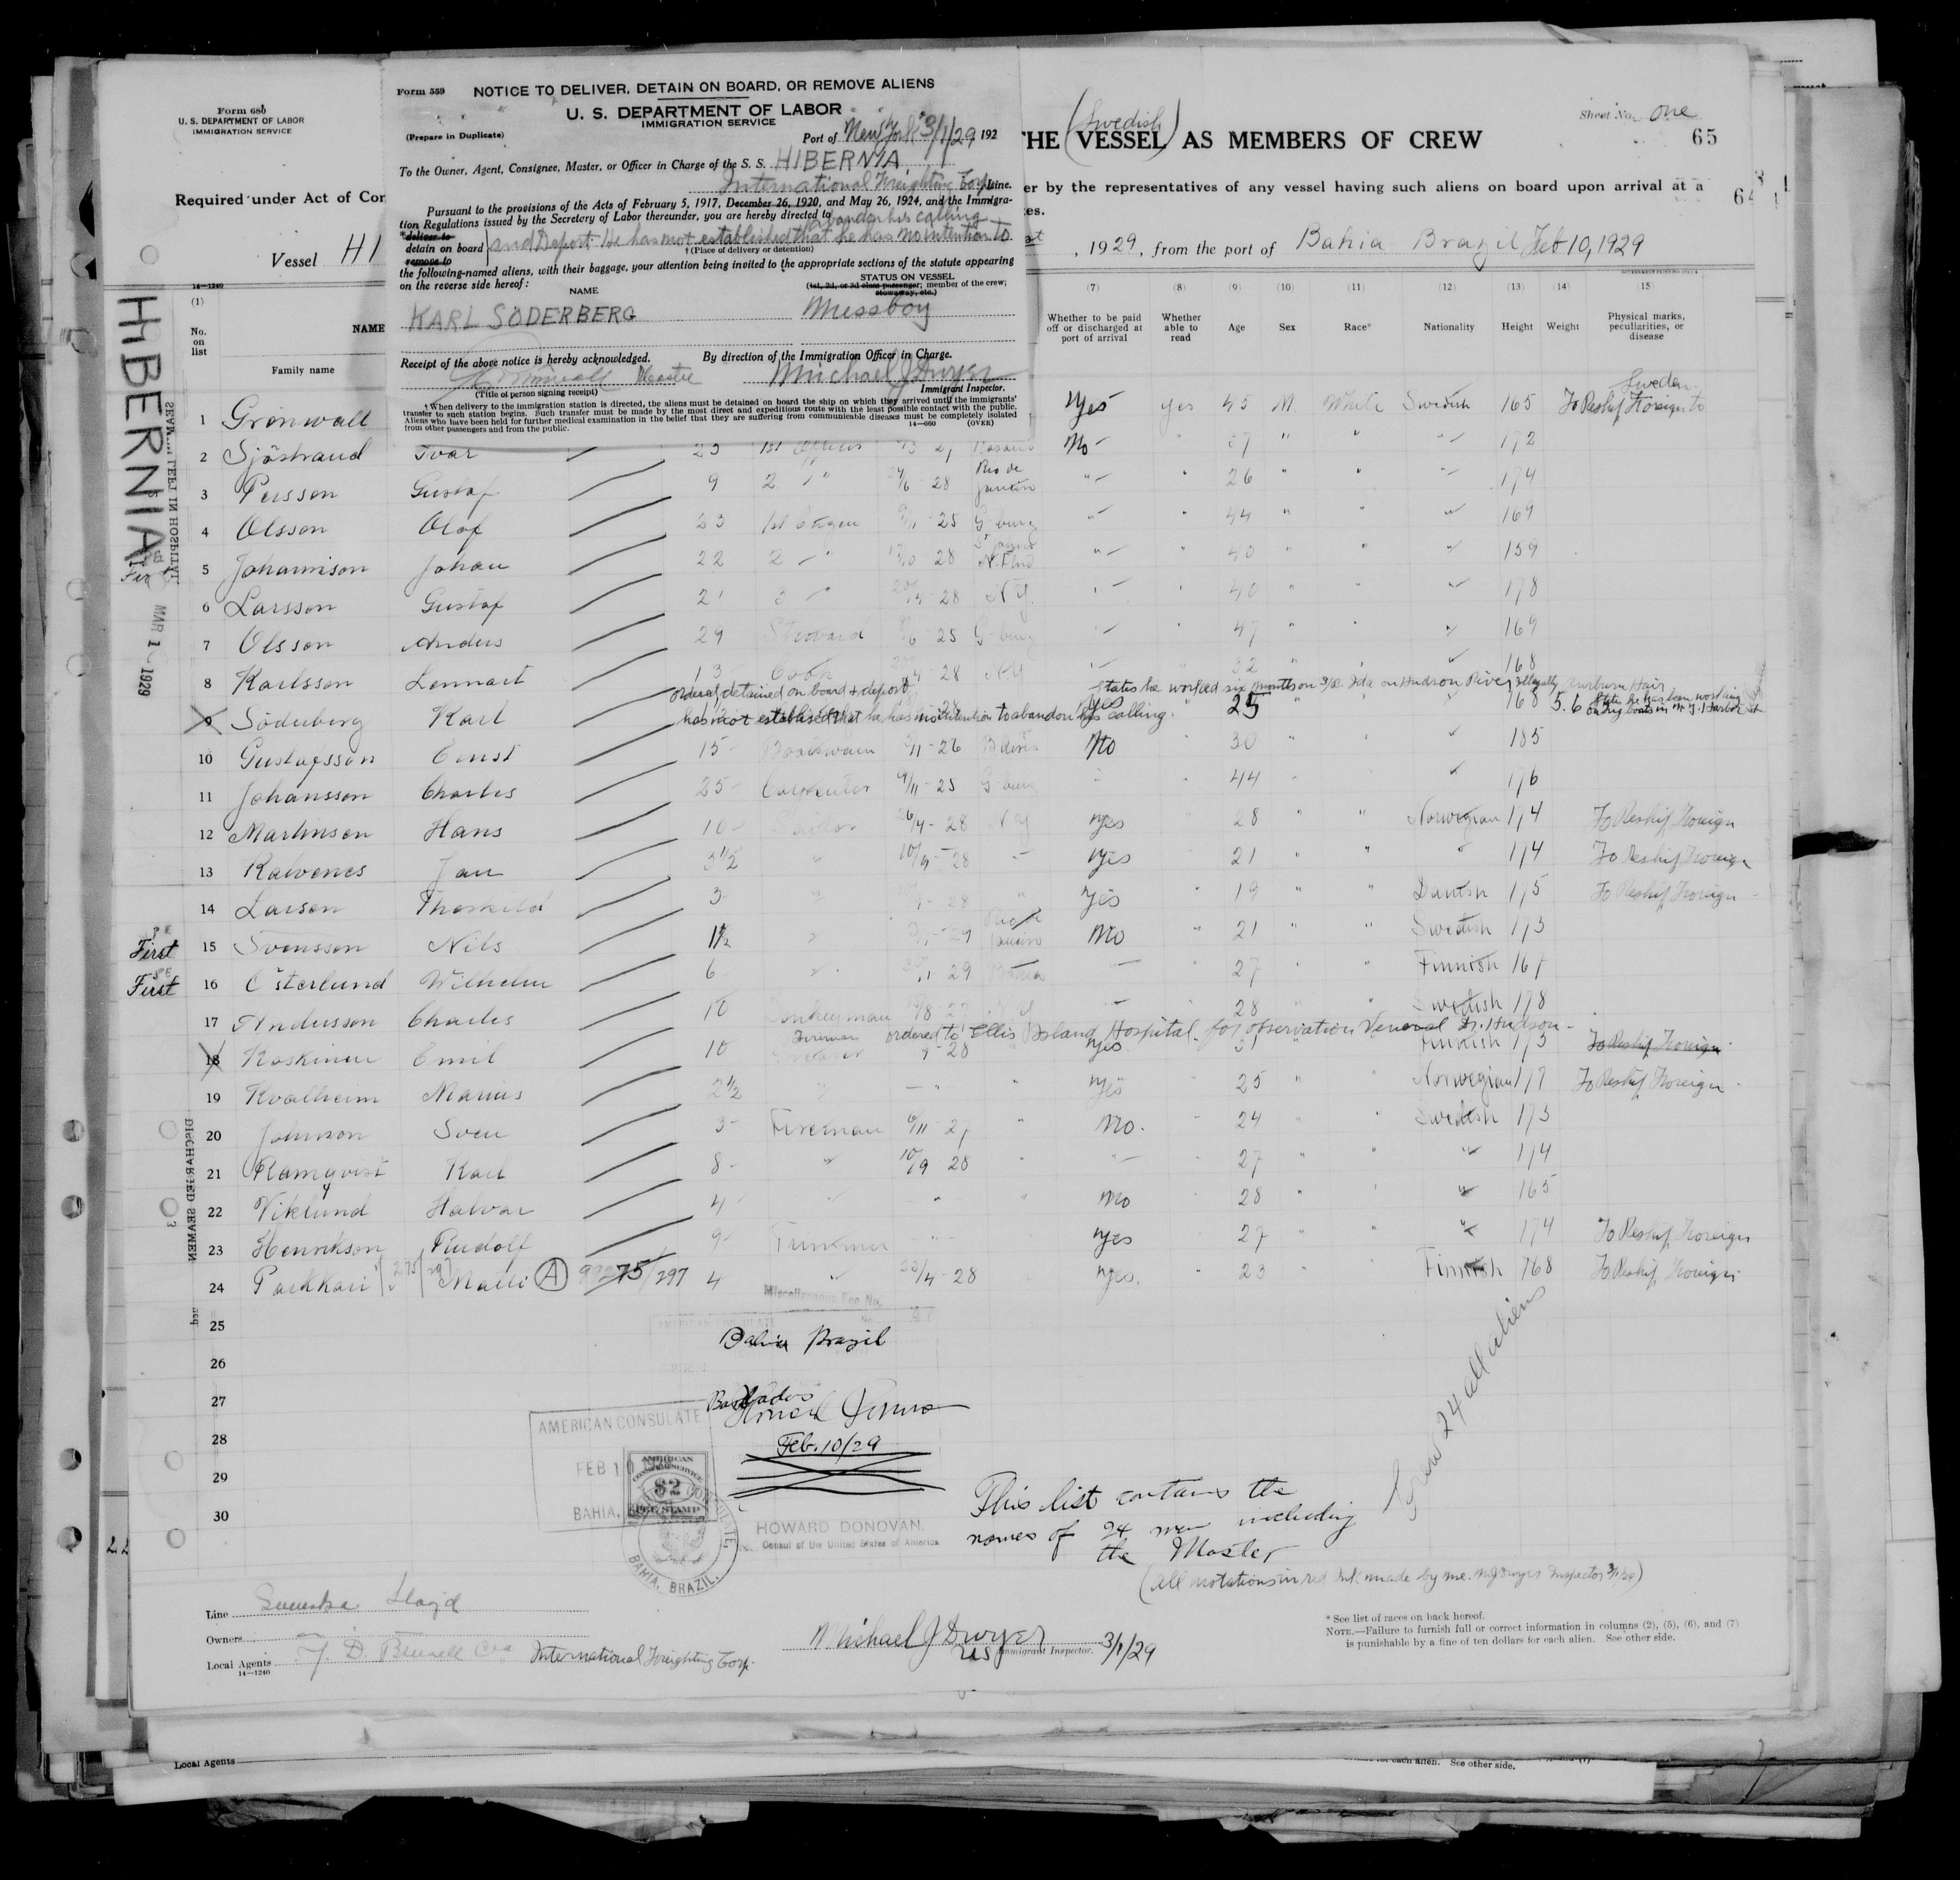 Form 680
U. S. DEPARTMENT OF LABOR
IMMIGRATION SERVICE
Required under Act of Con
Vessel HI
Form 559 NOTICE TO DELIVER, DETAIN ON BOARD, OR REMOVE ALIENS
U. S. DEPARTMENT OF LABOR
IMMIGRATION SERVICE
(Prepare in Duplicate)
Port of New York 3/1/29 192
To the Owner, Agent, Consignee, Master, or Officer in Charge of the S. S. HIBERNIA
International Freighting Corp. Line.
Pursuant to the provisions of the Acts of February 5, 1917, December 26, 1920, and May 26, 1924, and the Immigra-
tion Regulations issued by the Secretary of Labor thereunder, you are hereby directed to
abandon his calling
*deliver to
detain on board
remove to
and Deport. He has not established that he has no intention to
† (Place of delivery or detention)
the following-named aliens, with their baggage, your attention being invited to the appropriate sections of the statute appearing
on the reverse side hereof:
NAME
STATUS ON VESSEL
(1st, 2d, or 3d class passenger; member of the crew;
stowaway, etc.)
KARL SODERBERG Messboy
Receipt of the above notice is hereby acknowledged. By direction of the Immigration Officer in Charge.
Master Michael J Dwyer
(Title of person signing receipt) Immigrant Inspector.
† When delivery to the immigration station is directed, the aliens must be detained on board the ship on which they arrived until the immigrants'
transfer to such station begins. Such transfer must be made by the most direct and expeditious route with the least possible contact with the public.
Aliens who have been held for further medical examination in the belief that they are suffering from communicable diseases must be completely isolated
from other passengers and from the public. 14—660 (OVER)
(Swedish)
THE VESSEL AS MEMBERS OF CREW
Sheet No. one
65
64
er by the representatives of any vessel having such aliens on board upon arrival at a
tes.
, 1929, from the port of Bahia Brazil Feb 10, 1929
14—1240
(1) (7) (8) (9) (10) (11) (12) (13) (14) (15)
No. on list
NAME
Family name
Whether to be paid off or discharged at port of arrival
Whether able to read
Age Sex Race* Nationality Height Weight
Physical marks, peculiarities, or disease
HIBERNIA
MAR 1 1929
DISCHARGED SEAMEN
1 Grönwall Yes yes 45 M. White Swedish 165 To Reship Foreign to Sweden
2 Sjöstrand Ivar 1st 27 No 37 " " " 172
3 Persson Gustaf 9 2 " 28 Rio de Janeiro " " 26 " " " 174
4 Olsson Olof 23 1st Engen 25 G-burg " " 44 " " " 169
5 Johannison Johan 22 2 " 28 St Johns N. Flnd " " 40 " " " 159
6 Larsson Gustaf 21 3 " 28 N Y. " " 40 " " " 178
7 Olsson Anders 29 Steward 25 G-burg " " 47 " " " 169
8 Karlsson Lennart 13 Cook 28 N Y " " 32 " " " 168
ordered detained on board & deport states he worked six months on Ida on Hudson River illegally auburn Hair
9 Söderberg Karl 28 yes 25 168 5.6 States he has been working on tug boats in N.Y. Harbor
has not established that he has no intention to abandon his calling.
10 Gustafsson Ernst 15 Boatswain 9/11 - 26 B aires No 30 " " " 185
11 Johansson Charles 25 Carpenter 9/11 - 25 G-burg " " 44 " " " 176
12 Martinsen Hans 10 Sailor 26/4 - 28 N Y yes " 28 " " Norwegian 174 To Reship Foreign
13 Kalvenes Jan 3 1/2 " 10/9 - 28 " yes " 21 " " " 174 To Reship Foreign
14 Larsen Thorkild 3 " 28 " yes " 19 " " Danish 175 To Reship Foreign
First 15 Svensson Nils 1 1/2 " 29 Rio de Janeiro No " 21 " " Swedish 173
First 16 Österlund Wilhelm 6 " 29 Bahia " " 27 " " Finnish 167
17 Andersson Charles 10 Donkeyman 27 N.Y " " 28 " " Swedish 178
Fireman ordered to Ellis Island Hospital for observation Veneral Dr. Hudson
18 Koskinen Emil 10 28 yes 31 Finnish 173 To Reship Foreign
19 Kvalheim Marius 2 1/2 " " " yes 25 " Norwegian 177 To Reship Foreign
20 Johnson Sven 3 Fireman 6/11 - 27 " No. 24 Swedish 173
21 Ramqvist Karl 8 " 10/9 28 " " 27 " " " 174
22 Viklund Halvar 4 " " " No 28 " " " 165
23 Henrikson Rudolf 9 Trimmer " yes 27 " " " 174 To Reship Foreign
24 Parkkari Matti (A) 99275/297 4 " 23/4 - 28 yes. 23 Finnish 168 To Reship Foreign
25
26
27
28
29
30
Miscellaneous Fee No.
AMERICAN CONSULATE
Bahia Brazil
Barbados
Feb. 10/29
AMERICAN CONSULATE
FEB 10
BAHIA,
AMERICAN
CONSULAR SERVICE
$2
FEE STAMP
BAHIA, BRAZIL.
HOWARD DONOVAN,
Consul of the United States of America
This list contains the
names of 24 men including
the Master
Crew 24 all aliens
(All notations in red Ink made by me. MJ Dwyer Inspector 3/1/29)
Line Svenska Lloyd
Owners
Local Agents International Freighting Corp.
14—1240
Michael J Dwyer
US Immigrant Inspector. 3/1/29
* See list of races on back hereof.
NOTE.—Failure to furnish full or correct information in columns (2), (5), (6), and (7)
is punishable by a fine of ten dollars for each alien. See other side.
Local Agents
for each alien. See other side.